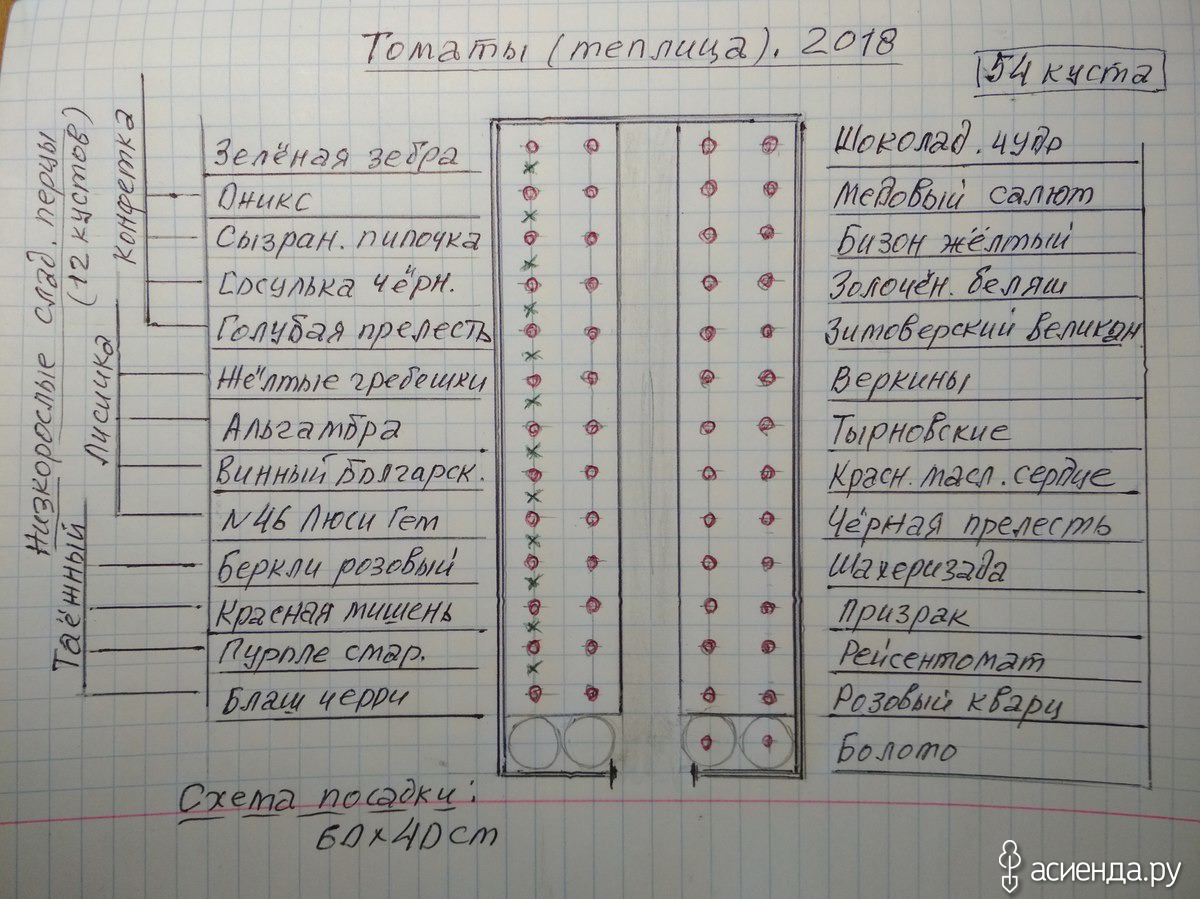 Томаты (теплица). 2018
54 куста
Низкорослые слад. перцы
(12 кустов)
Конфетка
Лисичка
Таёжный
Зелёная зебра
Оникс
Сызран. пипочка
Сосулька чёрн.
Голубая прелесть
Жёлтые гребешки
Альгамбра
Винный Болгарск.
N46 Люси Гет
Беркли розовый
Красная мишень
Пурпле смар.
Блаш черри
Шоколад. чудо
Медовый салют
Бизон жёлтый
Золочён. беляш
Зимоверский великан
Веркины
Тырновские
Красн. масл. сердце
Чёрная прелесть
Шахеризада
Призрак
Рейсентомат
Розовый кварц
Болото
Схема посадки:
60х40cm
асиенда.ру